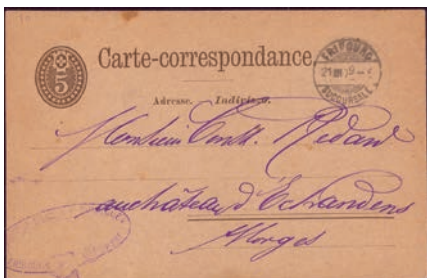 Carte-correspondance.
5
FRIBOURG
SUCCURSALE
Adresse. Indirizzo.
Monsieur Const. Redard
au château d'Echandens
Morges